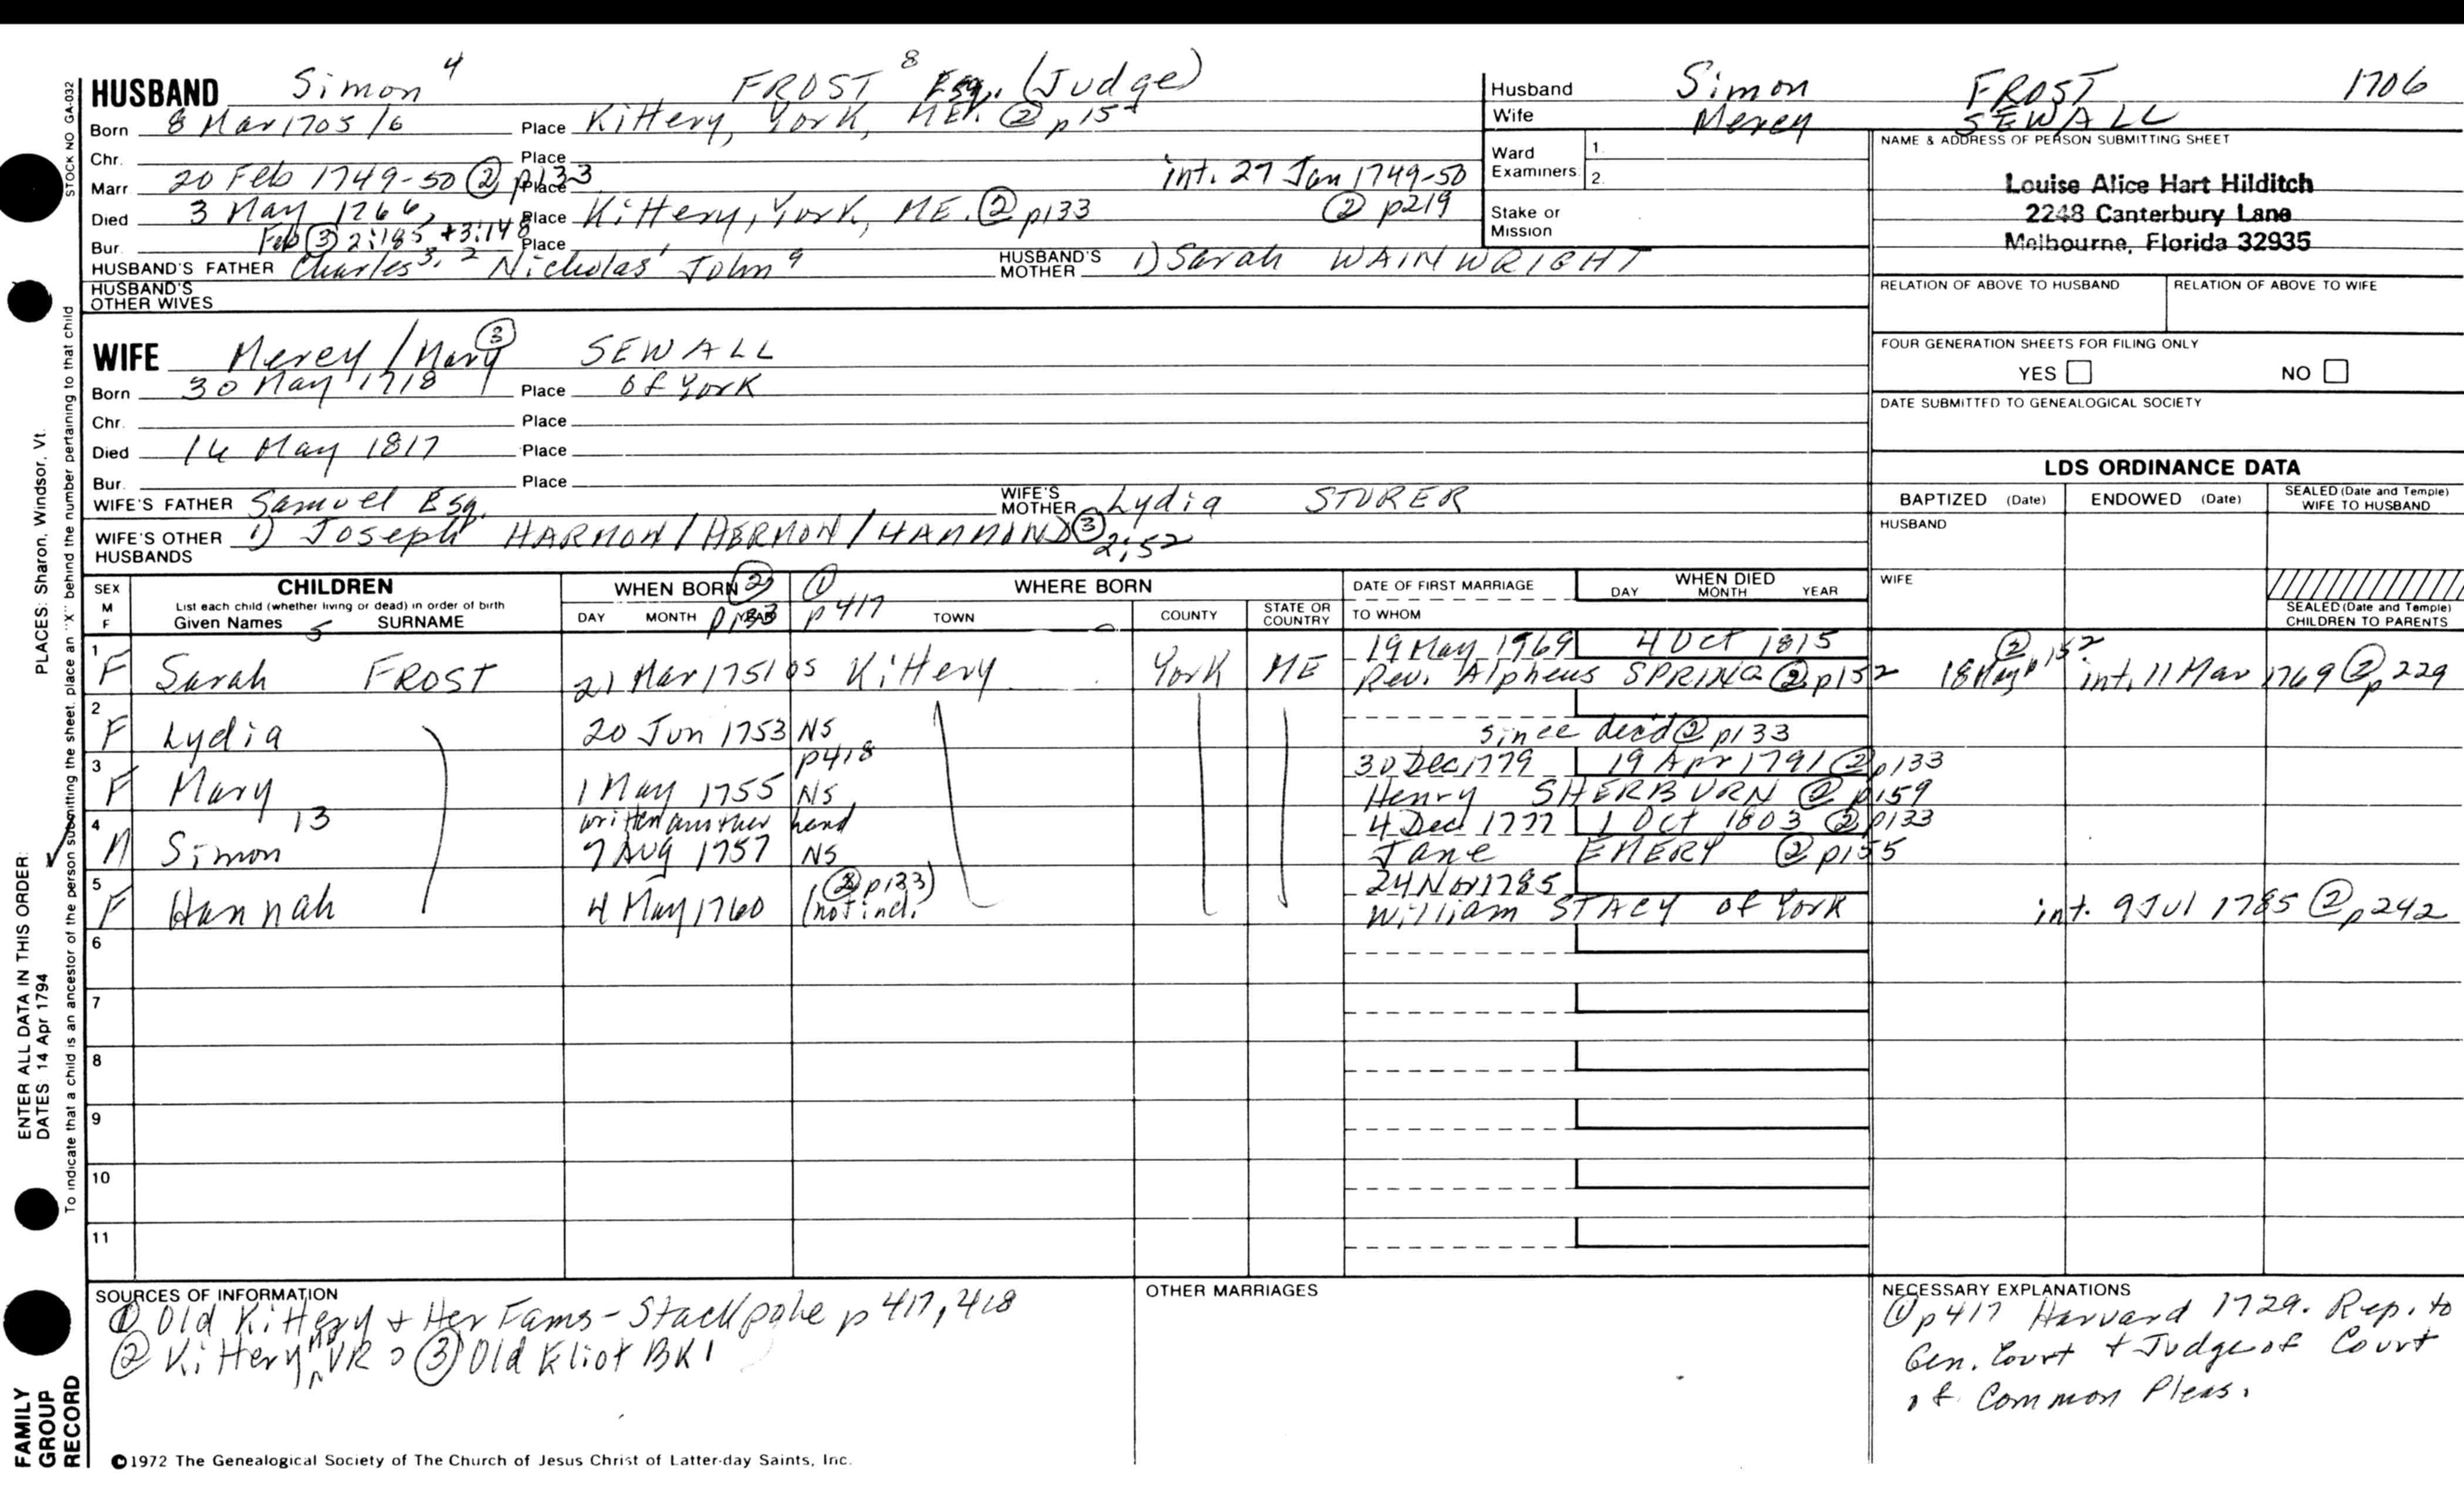 STOCK NO GA-032
HUSBAND Simon 4 FROST 8 Esq. (Judge)
Born 8 Mar 1705/6 Place Kittery, York, ME. ② p 15
Chr. Place
Marr. 20 Feb 1749-50 ② p133 Place int. 27 Jan 1749-50
Died 3 May 1766, Place Kittery, York, ME. ② p133 ② p219
Bur. Feb ③ 2:185 + 3:148 Place
HUSBAND'S FATHER Charles 3, 2 Nicholas 1 John 9 HUSBAND'S MOTHER 1) Sarah WAINWRIGHT
HUSBAND'S OTHER WIVES
Husband Simon FROST 1706
Wife Mercy SEWALL
Ward Examiners 1.
2.
Stake or Mission
NAME & ADDRESS OF PERSON SUBMITTING SHEET
Louise Alice Hart Hilditch
2248 Canterbury Lane
Melbourne, Florida 32935
RELATION OF ABOVE TO HUSBAND RELATION OF ABOVE TO WIFE
FOUR GENERATION SHEETS FOR FILING ONLY
YES NO
DATE SUBMITTED TO GENEALOGICAL SOCIETY
WIFE Mercy/Mary ③ SEWALL
Born 30 May 1718 Place of York
Chr. Place
Died 14 May 1817 Place
Bur. Place
WIFE'S FATHER Samuel Esq. WIFE'S MOTHER Lydia STORER
WIFE'S OTHER HUSBANDS 1) Joseph HARMON/HERMON/HAMMOND ③ 2:52
LDS ORDINANCE DATA
BAPTIZED (Date) ENDOWED (Date) SEALED (Date and Temple) WIFE TO HUSBAND
HUSBAND
WIFE
SEALED (Date and Temple) CHILDREN TO PARENTS
SEX M F
CHILDREN
List each child (whether living or dead) in order of birth
Given Names 5 SURNAME
WHEN BORN ② p133
DAY MONTH YEAR
① p417 WHERE BORN
TOWN COUNTY STATE OR COUNTRY
DATE OF FIRST MARRIAGE
TO WHOM
WHEN DIED
DAY MONTH YEAR
1 19 May 1769 4 Oct 1815
F Sarah FROST 21 Mar 1751 OS Kittery York ME Rev. Alpheus SPRING ② p152 18 May ② p152 int. 11 Mar 1769 ② p 229
2
F Lydia 20 Jun 1753 NS since dec'd ② p133
3 p418 30 Dec 1779 19 Apr 1791 ② p133
F Mary 1 May 1755 NS Henry SHERBURN ② p159
4 13 written another hand 4 Dec 1777 1 Oct 1803 ② p133
M Simon 7 Aug 1757 NS Jane EMERY ② p155
5 (② p133) 24 Nov 1785
F Hannah 4 May 1760 (not incl. William STACY of York int. 9 Jul 1785 ② p242
6
7
8
9
10
11
SOURCES OF INFORMATION
① Old Kittery + Her Fams - Stackpole p 417, 418
② Kittery ME VR ③ Old Eliot BK 1
OTHER MARRIAGES
NECESSARY EXPLANATIONS
① p417 Harvard 1729. Rep. to
Gen. Court + Judge of Court
of Common Pleas.
©1972 The Genealogical Society of The Church of Jesus Christ of Latter-day Saints, Inc.
ENTER ALL DATA IN THIS ORDER:
PLACES: Sharon, Windsor, Vt.
DATES 14 Apr 1794
To indicate that a child is an ancestor of the person submitting the sheet, place an "X" behind the number pertaining to that child
FAMILY GROUP RECORD